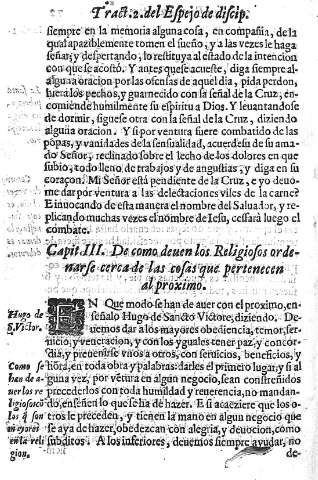 Tract. 2. del Espejo de discip.
siempre en la memoria alguna cosa, en compañia, de la
qual apaziblemente tomen el sueño, y a las vezes le haga
señar; y despertando, lo restituya al estado de la intencion
con que se acostó. Y antes que se acueste, diga siempre al-
guna oracion por las ofensas de aquel dia, pida perdon,
hiera los pechos, y guarnecido con la señal de la Cruz, en-
comiende humilmente su espiritu a Dios. Y leuantandose
de dormir, siguese otra con la señal de la Cruz, diziendo
alguna oracion. Y si por ventura fuere combatido de las
popas, y vanidades de la sensualidad, acuerdesu de su ama-
do Señor, reclinado sobre el lecho de los dolores en que
subio, todo lleno de trabajos y de angustias, y diga en su
coraçon. Mi Señor està pendiente de la Cruz, e yo deuo-
me dar por ventura a las delectaciones viles de la carne?
E inuocando de esta manera el nombre del Saluador, y re-
plicando muchas vezes el nombre de Iesu, cessarà luego el
combate.
Capit. III. De como deuen los Religiosos orde-
narse cerca de las cosas que pertenecen
al proximo.
Hugo de
S. Victor.
EN Que modo se han de auer con el proximo, en-
señalo Hugo de Sancto Victore, diziendo. De-
uemos dar a los mayores obediencia, temor, ser-
uicio, y veneracion, y con los yguales tener paz y concor-
dia, y preuenirse vnos a otros, con seruicios, beneficios, y
Como se
han de a-
uer los re
ligiosos cō
los q̃ son
mayores
en la reli
gion.
hōra, en toda obra y palabras: darles el primer lugar, y si al
guna vez, por vētura en algun negocio, sean constreñidos
precederlos con toda humildad y reuerencia, no mandan-
do, enseñen lo que se ha de hazer. E si acaeziere que los o-
tros le preceden, y tienen la mano en algun negocio que
se aya de hazer, obedezcan con alegria, y deuocion, como
subditos. A los inferiores, deuemos siempre ayudar, no
de-